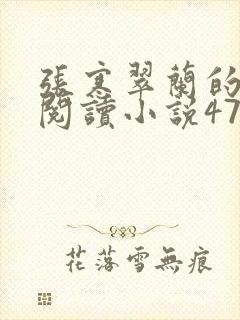 張寒翠蘭的
閱讀小説47
花落雪無痕